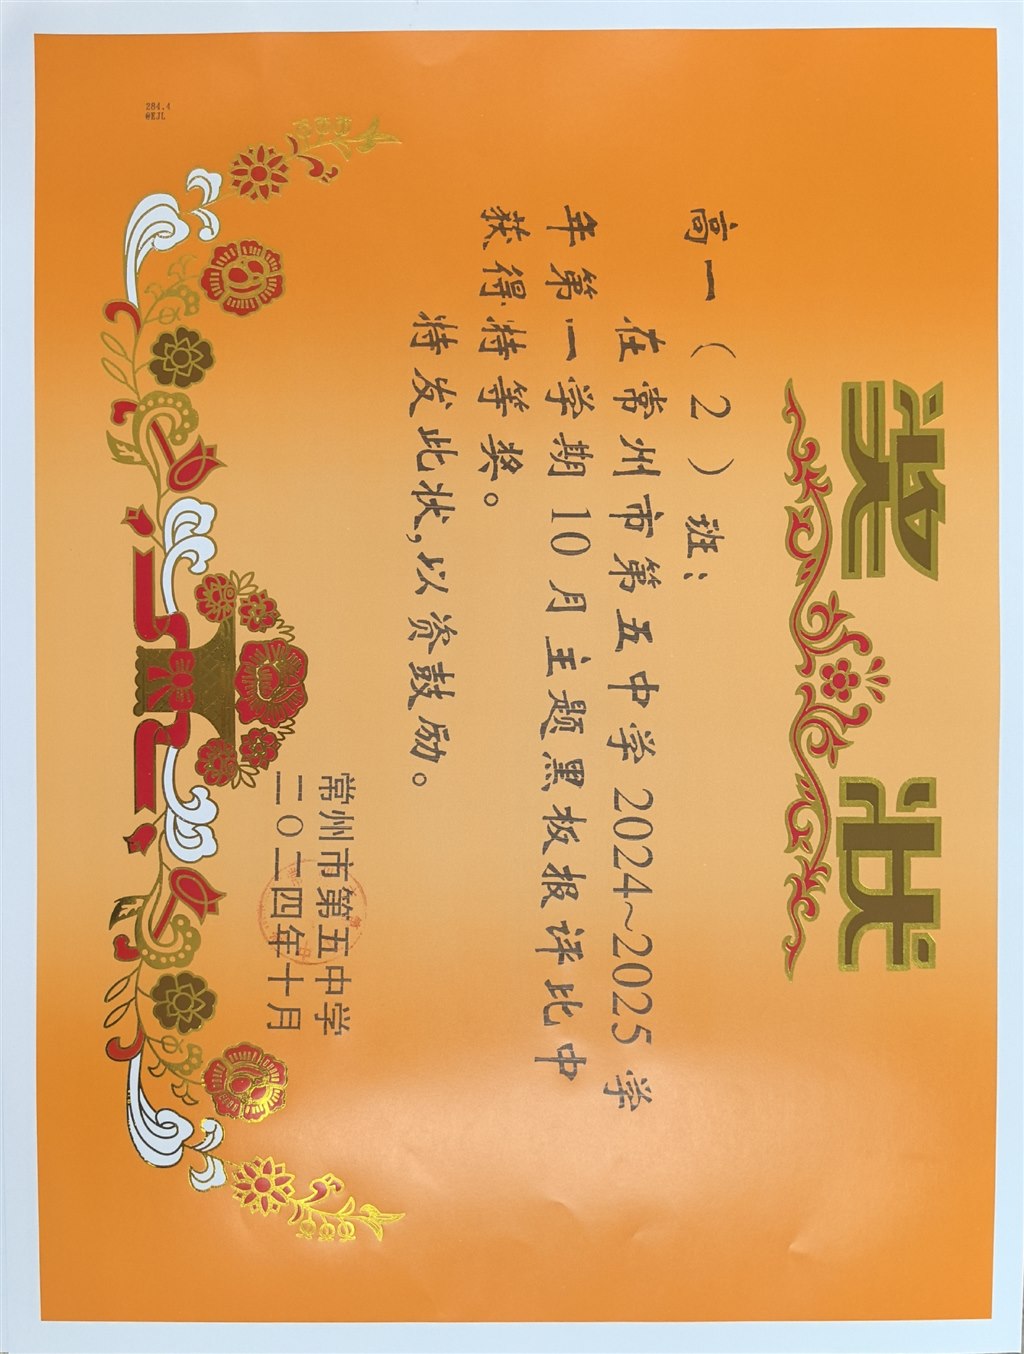 奖状
高一（2）班：
在常州市第五中学2024~2025学
年第一学期10月主题黑板报评比中
获得特等奖。
特发此状，以资鼓励。
常州市第五中学
二〇二四年十月
284.4
@EJL